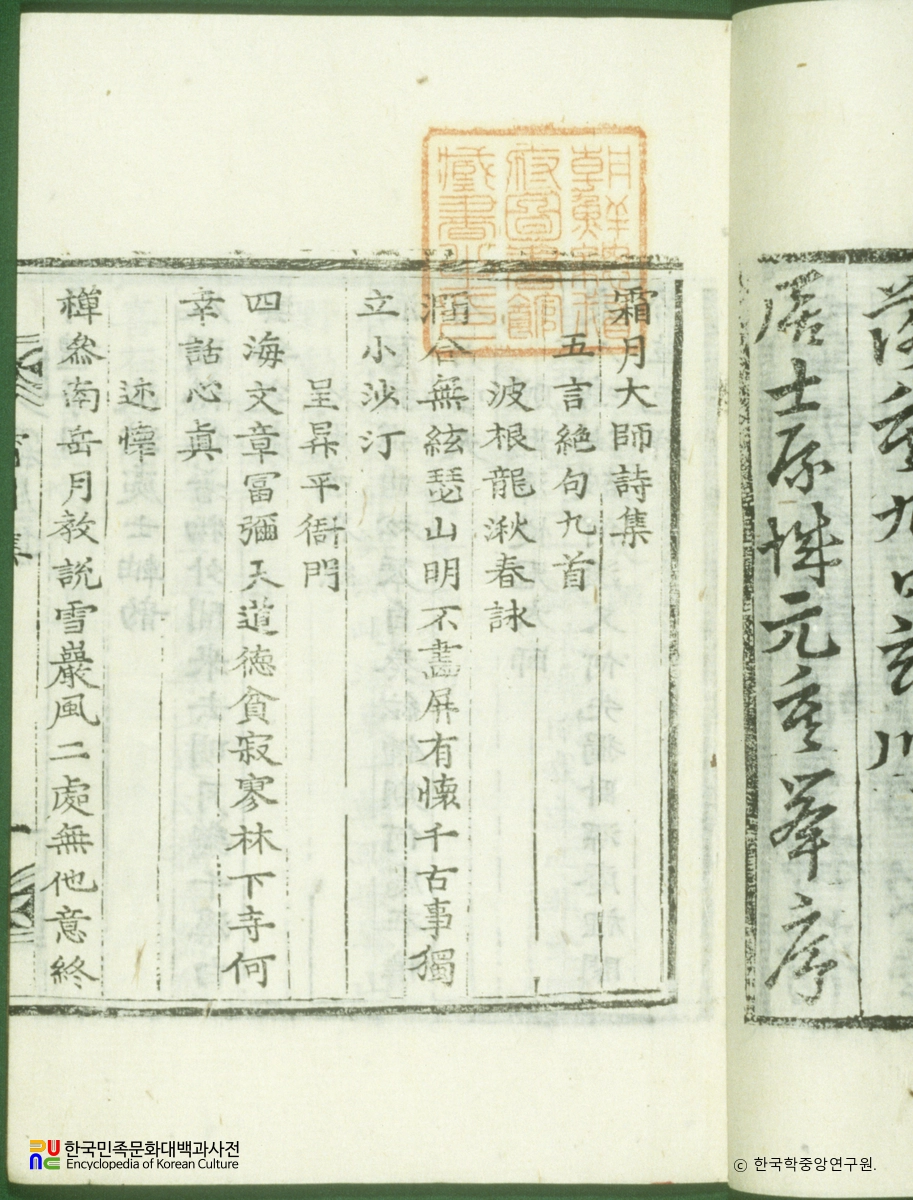 居士原城元重擧序
霜月大師詩集
五言絶句九首
波根龍湫春詠
澗合無絃瑟山明不畵屛有懷千古事獨
立小沙汀
呈昇平衙門
四海文章冨彌天道德貧寂寥林下寺何
幸話心眞
述懷
禪叅南岳月敎說雪巖風二處無他意終
한국민족문화대백과사전
Encyclopedia of Korean Culture
© 한국학중앙연구원.